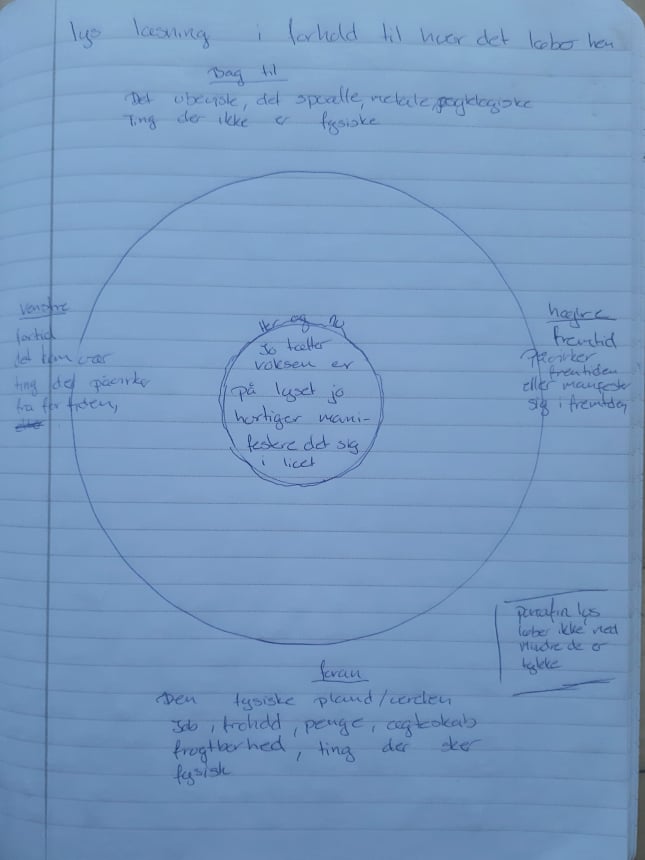 lys læsning i forhold til hvor det løber hen
Bag til
Det ubeviste, det spiralle, metale, psykologiske
Ting der ikke er fysiske
venstre
fortid
det kan vær
ting der påvirker
fra for tiden,
Her og Nu
Jo tætter
voksen er
på lyset jo
hurtiger mani-
festere det sig
i livet
højre
fremtid
Påvirker
fremtiden
eller manifester
sig i fremtiden
parafin lys
løber ikke ned
mindre de er
tykke
foran
Den fysiske pland/verden
Job, forhold, penge, ægteskab
frugtberhed, ting der sker
fysisk